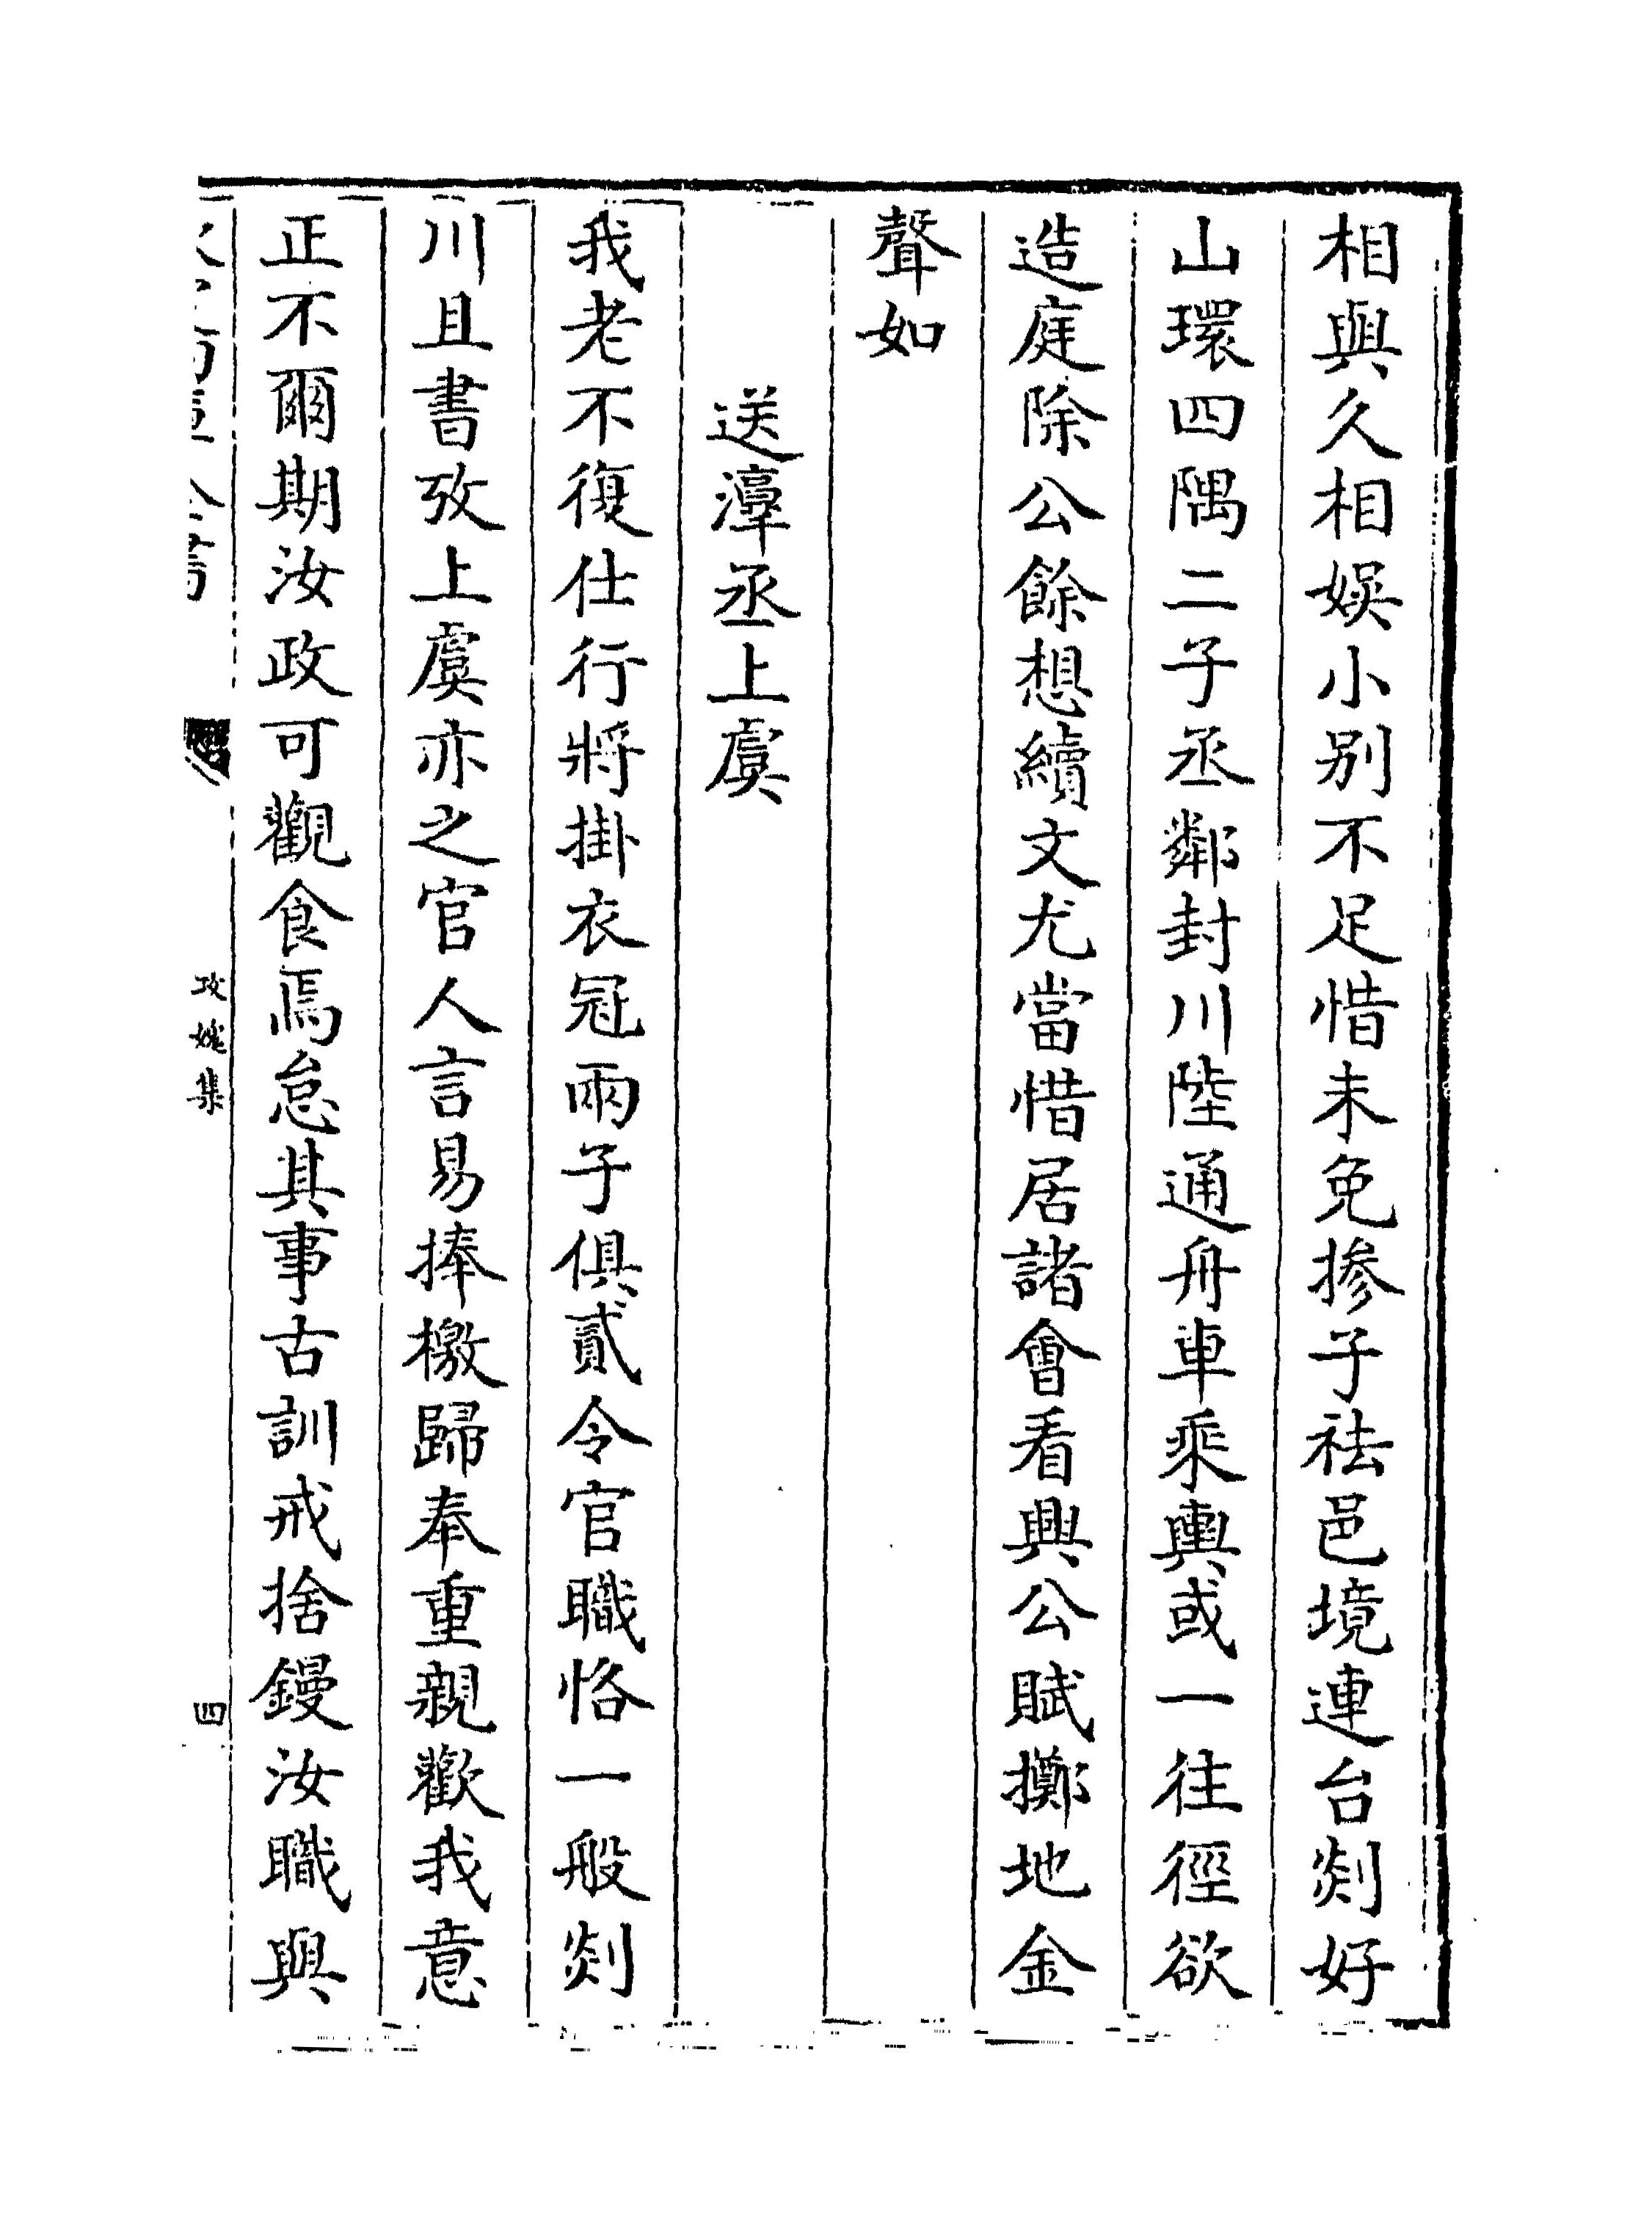 相與久相娯小别不足惜未免掺子祛邑境連台剡好
山環四隅二子丞鄰封川陸通舟車乘輿或一往徑欲
造庭除公餘想續文尤當惜居諸會看興公賦擲地金
聲如
送濘丞上虞
我老不復仕行將掛衣冠兩子俱貳令官職恪一般剡
川且書攷上虞亦之官人言易捧檄歸奉重親歡我意
正不爾期汝政可觀食焉怠其事古訓戒捨鏝汝職與
攻媿集
四